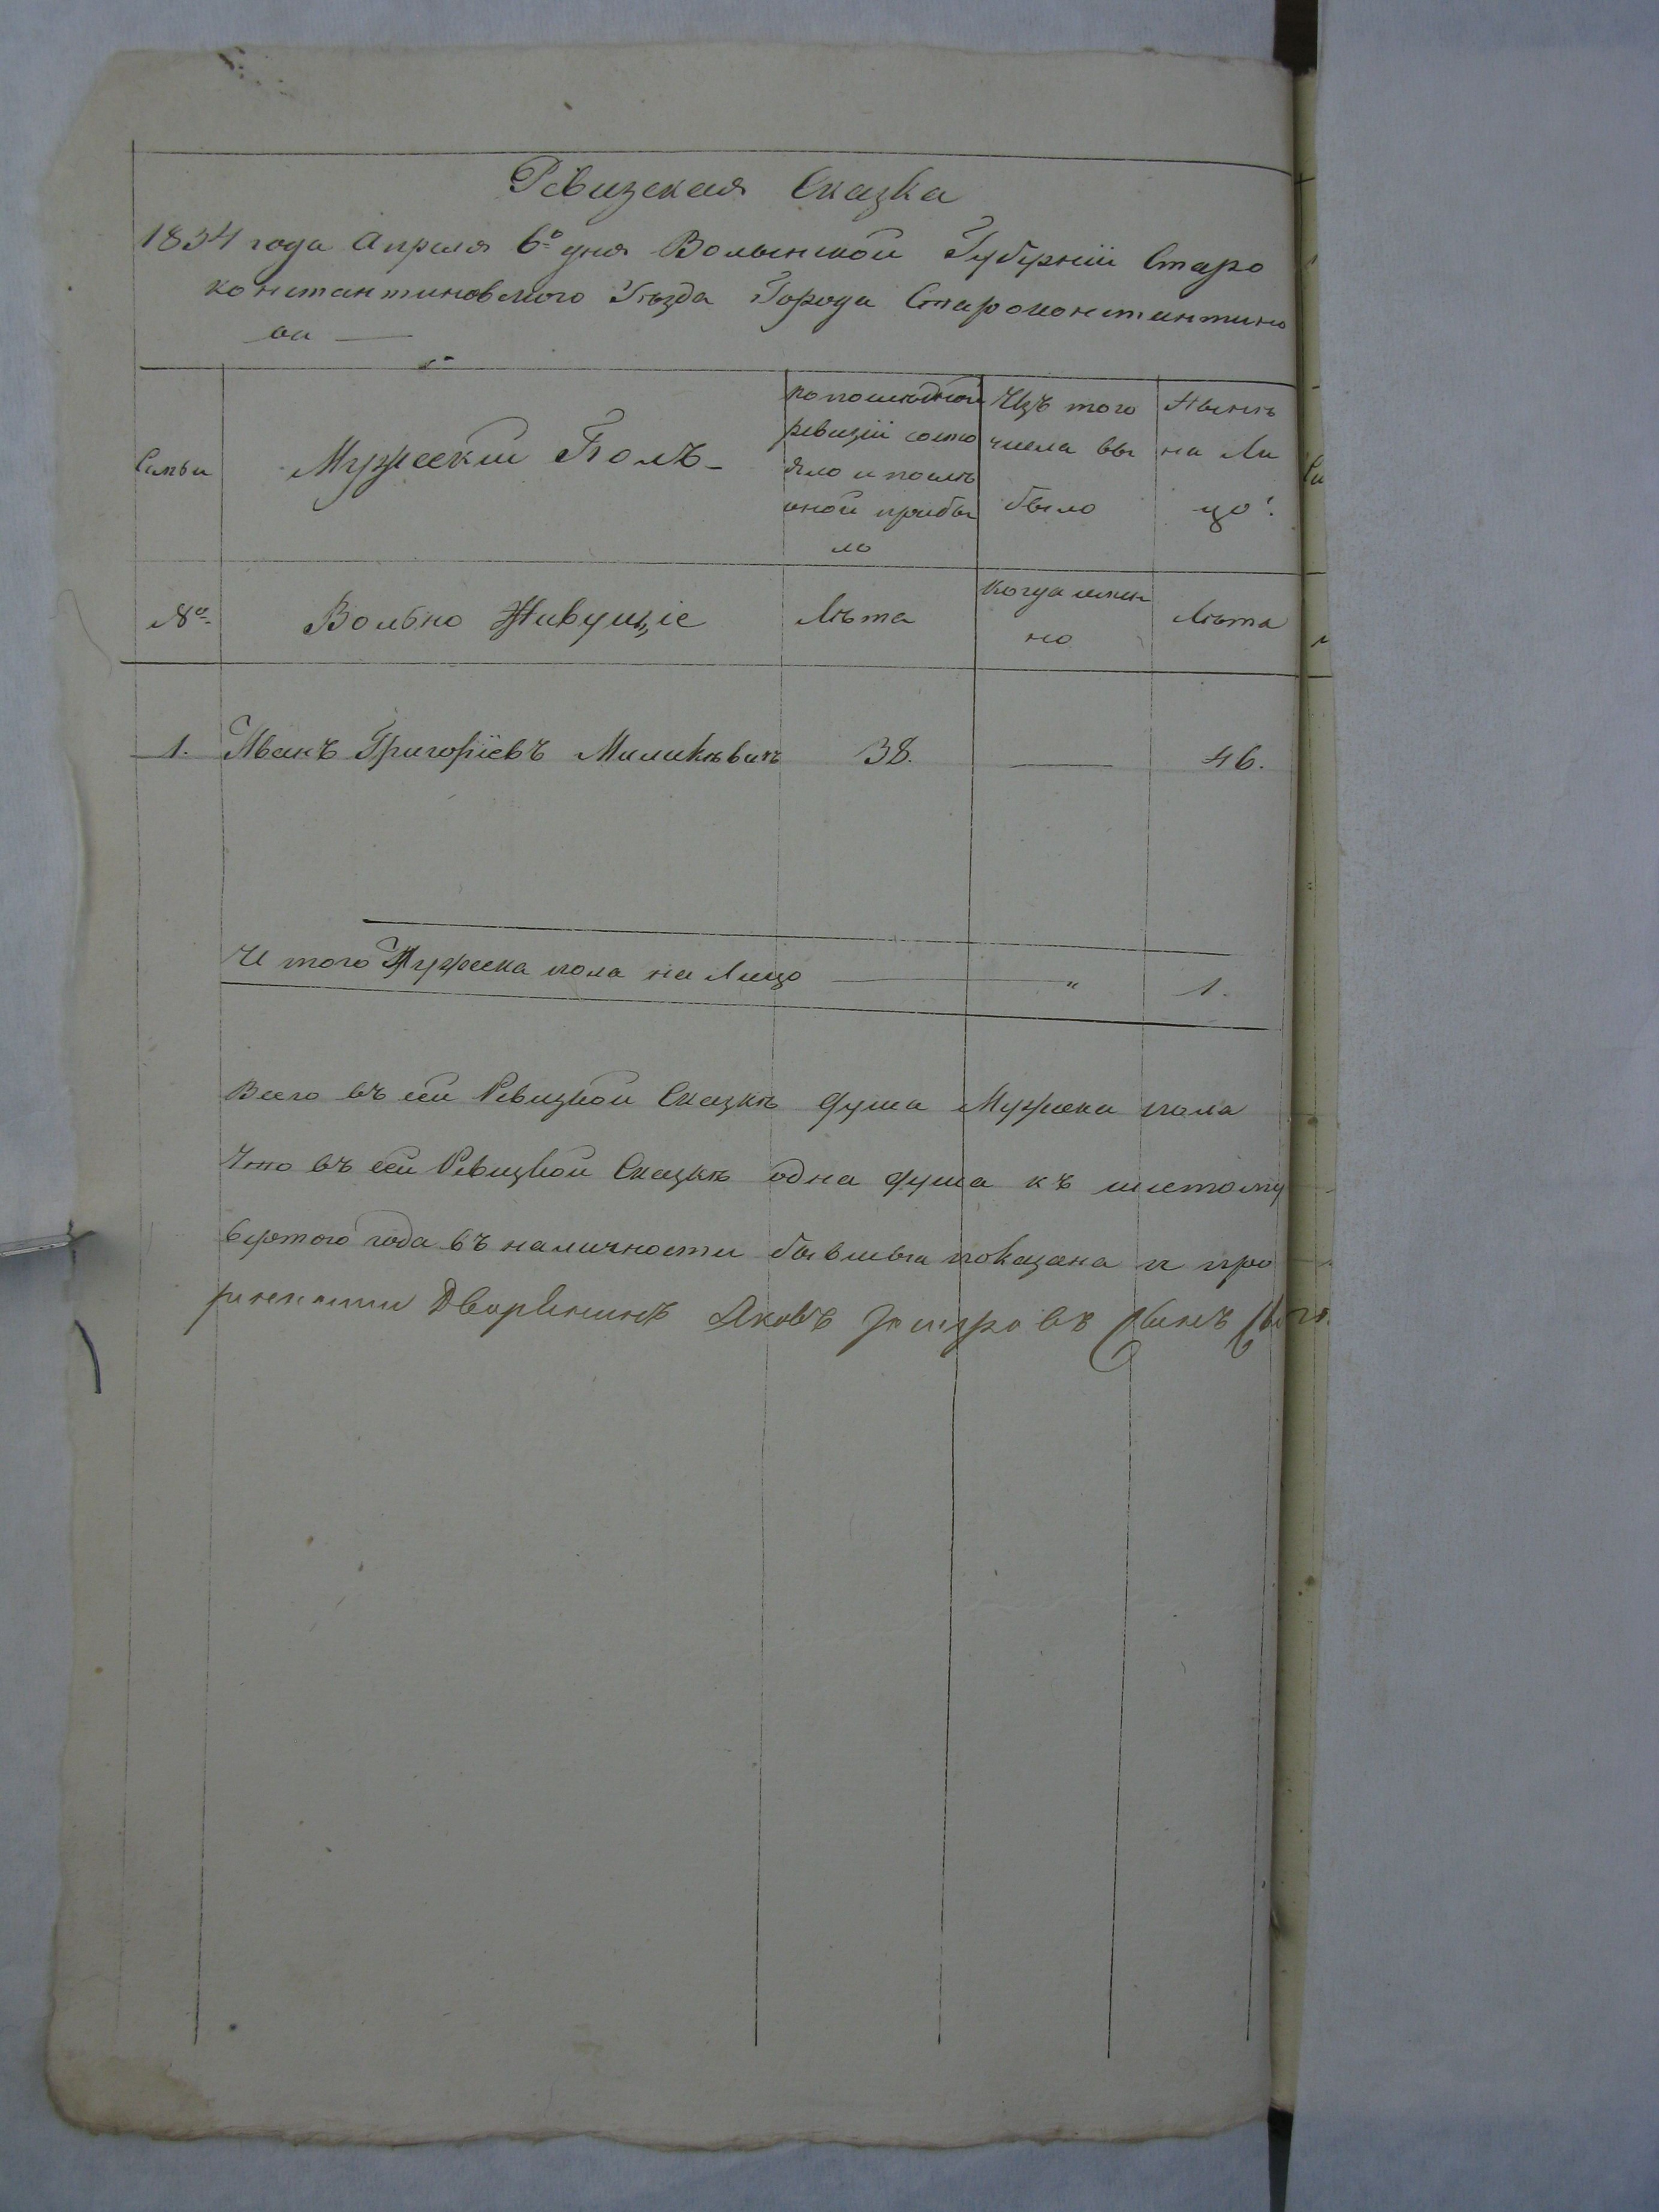 Ревизская Сказка
1834 года Апреля 6º дня Волынской Губернiи Старо
константиновского Уѣзда Города Староконстантино
ва —
Семьи
Мужескiй Полъ
по послѣдней
ревизiи состо
яло и послѣ
оной прибы
ло
Изъ того
числа вы
было
Нынѣ
на Ли
цо
№
Вольно Живущiе
Лѣта
когда имен
но
Лѣта
1. Иванъ Григорiевъ 38. — 46.
И того Мужеска пола на Лицо — " 1.
Всего въ сей Ревизкой Сказкѣ душа Мужеска пола
Что въ сей Ревизкой Сказкѣ одна душа къ шестому
вертого года въ наличности бывшыа показана и про
Дворянинъ Яковъ Сынъ